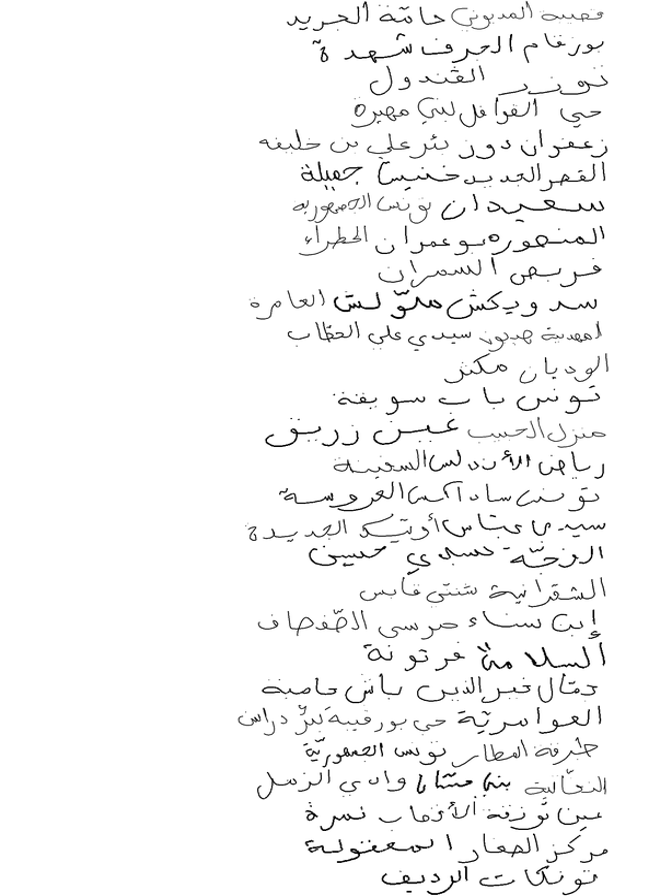 قصيبة المديوني حامة الجريد
بورقام الجرف شهدة
توزر القندول
حي الفوافل لبني مهيرة
زعفران دوز بئر علي بن خليفة
القصر الجديد خنيس جميلة
سعيدان تونس الجمهورية
المنصورة بوعمران الخطراء
قريص السمران
سدويكش ملولش العامرة
المهدية جديون سيدي علي الحطاب
الوديان مكثر
تونس باب سويقة
منزل الحبيب غبين زريق
رياض الأندلس السفينة
تونس ساداكس العروسة
سيدي عباس أوتيك الجديدة
الرخمة سيدي حسين
الشقرانية شنني قابس
إبن سناء مرسى الصفصاف
السلامة فرتونة
جمال خير الدين باش حامبة
العوامرية حي بورقيبة بئر دراس
طرفة المطار تونس الجمهورية
النعمانية بني مشار وادي الرمل
عين توزقة الأقصاب نسرة
مركز الصغار المعقولة
تونكات الرديف